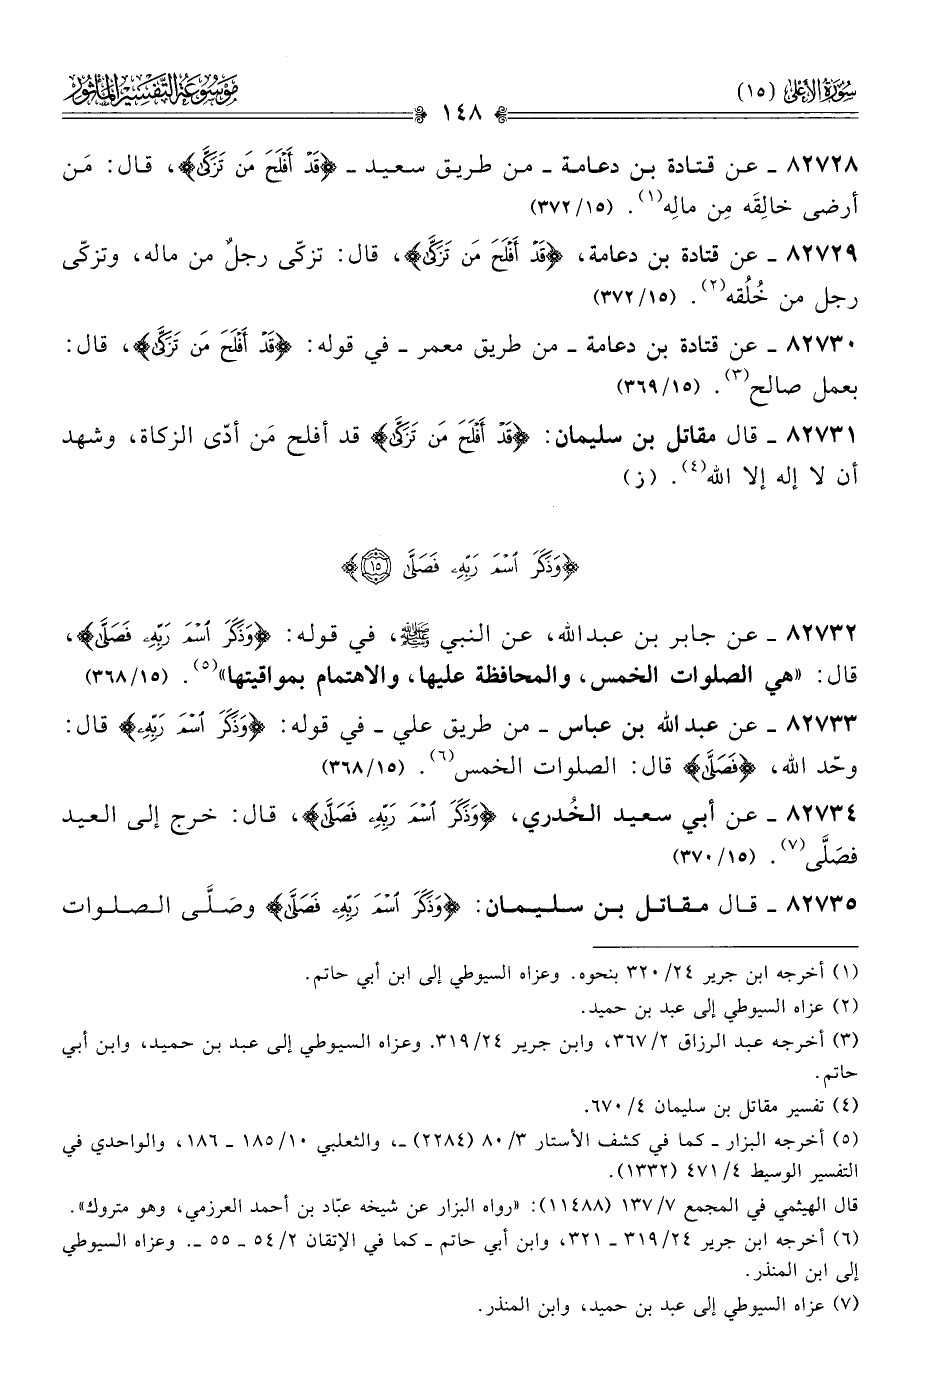 سُورَةُ الأَعْلَى (١٥)
مَوْسُوعَةُ التَّفْسِيرِ المَأْثُورِ
١٤٨
٨٢٧٢٨ ـ عن قتادة بن دعامة ـ من طريق سعيد ـ ﴿قَدْ أَفْلَحَ مَن تَزَكَّىٰ﴾، قال: مَن
أرضى خالِقَه مِن مالِه(١). (٣٧٢/١٥)
٨٢٧٢٩ ـ عن قتادة بن دعامة، ﴿قَدْ أَفْلَحَ مَن تَزَكَّىٰ﴾، قال: تزكّى رجلٌ من ماله، وتزكّى
رجل من خُلُقه(٢). (٣٧٢/١٥)
٨٢٧٣٠ ـ عن قتادة بن دعامة ـ من طريق معمر ـ في قوله: ﴿قَدْ أَفْلَحَ مَن تَزَكَّىٰ﴾، قال:
بعمل صالح(٣). (٣٦٩/١٥)
٨٢٧٣١ ـ قال مقاتل بن سليمان: ﴿قَدْ أَفْلَحَ مَن تَزَكَّىٰ﴾ قد أفلح مَن أدّى الزكاة، وشهد
أن لا إله إلا الله(٤). (ز)
﴿وَذَكَرَ ٱسْمَ رَبِّهِۦ فَصَلَّىٰ ١٥﴾
٨٢٧٣٢ ـ عن جابر بن عبدالله، عن النبي ﷺ، في قوله: ﴿وَذَكَرَ ٱسْمَ رَبِّهِۦ فَصَلَّىٰ﴾،
قال: «هي الصلوات الخمس، والمحافظة عليها، والاهتمام بمواقيتها»(٥). (٣٦٨/١٥)
٨٢٧٣٣ ـ عن عبدالله بن عباس ـ من طريق علي ـ في قوله: ﴿وَذَكَرَ ٱسْمَ رَبِّهِۦ﴾ قال:
وحّد الله، ﴿فَصَلَّىٰ﴾ قال: الصلوات الخمس(٦). (٣٦٨/١٥)
٨٢٧٣٤ ـ عن أبي سعيد الخُدري، ﴿وَذَكَرَ ٱسْمَ رَبِّهِۦ فَصَلَّىٰ﴾، قال: خرج إلى العيد
فصَلَّى(٧). (٣٧٠/١٥)
٨٢٧٣٥ ـ قال مقاتل بن سليمان: ﴿وَذَكَرَ ٱسْمَ رَبِّهِۦ فَصَلَّىٰ﴾ وصَلَّى الصلوات
(١) أخرجه ابن جرير ٣٢٠/٢٤ بنحوه. وعزاه السيوطي إلى ابن أبي حاتم.
(٢) عزاه السيوطي إلى عبد بن حميد.
(٣) أخرجه عبد الرزاق ٣٦٧/٢، وابن جرير ٣١٩/٢٤. وعزاه السيوطي إلى عبد بن حميد، وابن أبي
حاتم.
(٤) تفسير مقاتل بن سليمان ٦٧٠/٤.
(٥) أخرجه البزار ـ كما في كشف الأستار ٨٠/٣ (٢٢٨٤) ـ، والثعلبي ١٨٥/١٠ ـ ١٨٦، والواحدي في
التفسير الوسيط ٤٧١/٤ (١٣٣٢).
قال الهيثمي في المجمع ١٣٧/٧ (١١٤٨٨): «رواه البزار عن شيخه عبّاد بن أحمد العرزمي، وهو متروك».
(٦) أخرجه ابن جرير ٣١٩/٢٤ ـ ٣٢١، وابن أبي حاتم ـ كما في الإتقان ٥٤/٢ ـ ٥٥ ـ. وعزاه السيوطي
إلى ابن المنذر.
(٧) عزاه السيوطي إلى عبد بن حميد، وابن المنذر.